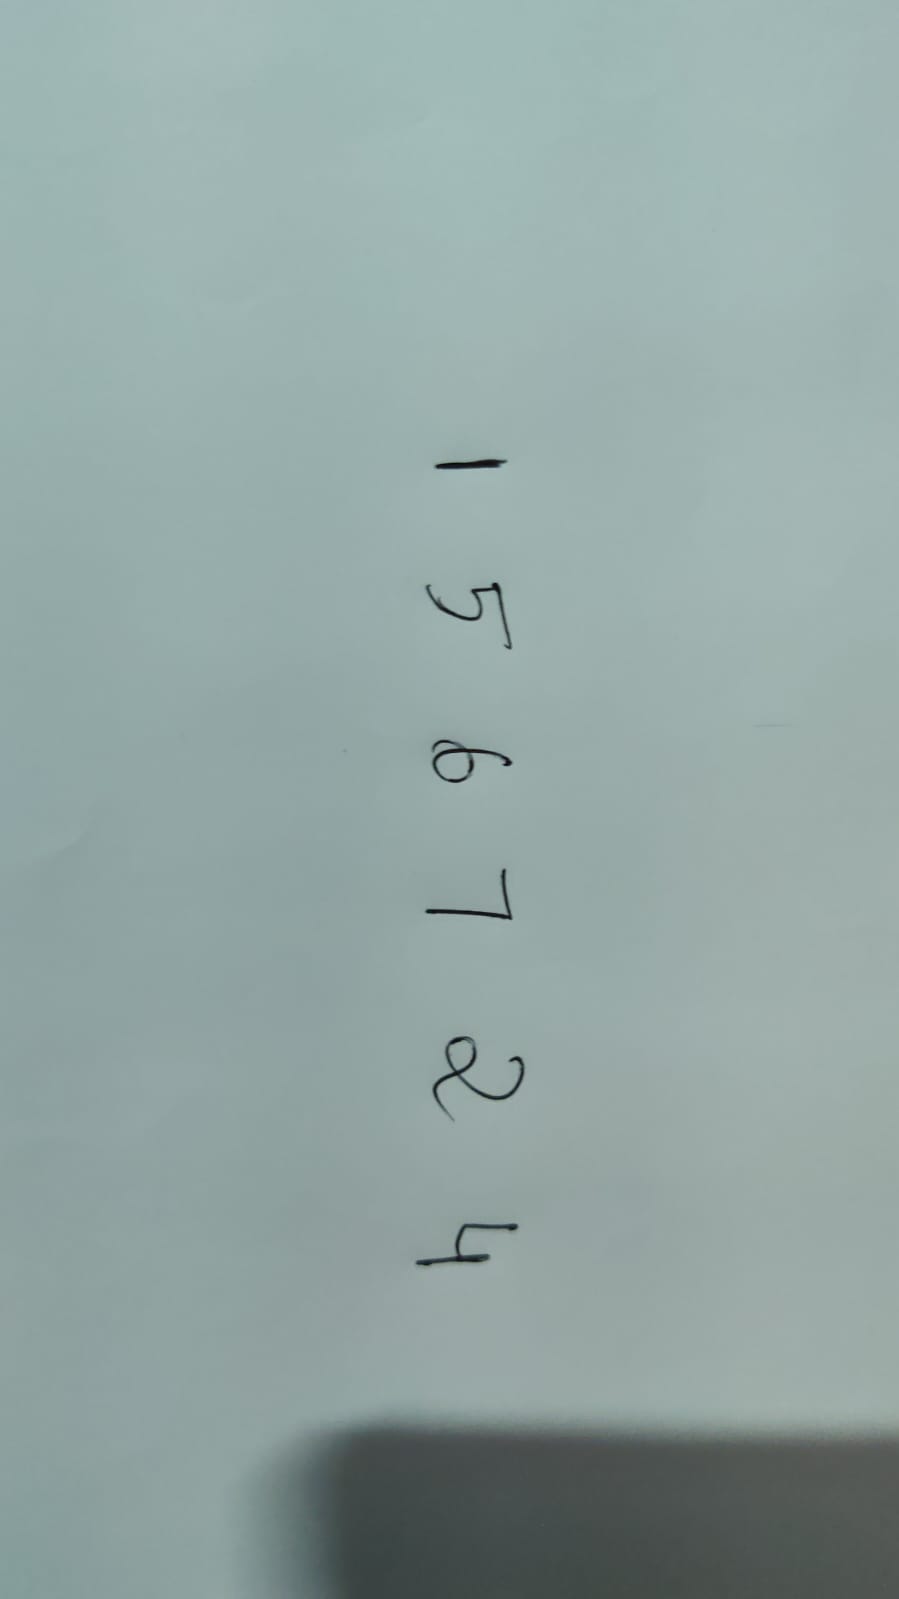 1 5 6 7 2 4